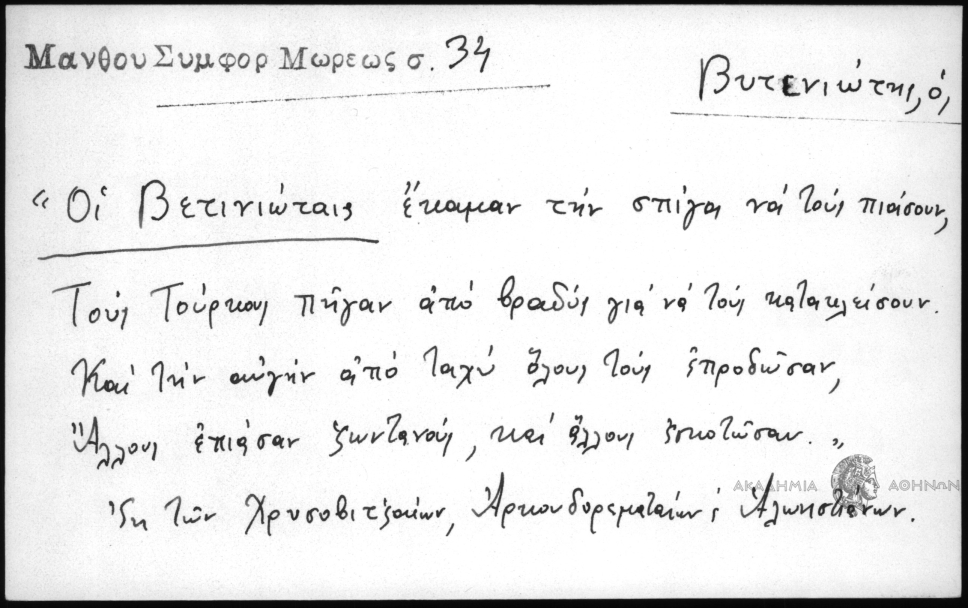 Μανθου Συμφορ Μωρεως σ. 34
Βυτενιώτης, ὁ,
“Οἱ Βετινιώταις ἔκαμαν τὴν σπίγα νὰ τοὺς πιάσουν,
Τοὺς Τούρκους πῆγαν ἀπὸ βραδὺς γιὰ νὰ τοὺς κατακλείσουν.
Καὶ τὴν αὐγὴν ἀπὸ ταχὺ ὅλους τοὺς ἐπροδῶσαν,
Ἄλλους ἐπιάσαν ζωντανούς, καὶ ἄλλους ἐσκοτῶσαν.„
ΑΚΑΔΗΜΙΑ ΑΘΗΝΩΝ
Ἐκ τῶν Χρυσοβιτζαίων, Ἀρκουδορεματαίων ς Ἀλωνιστιάνων.